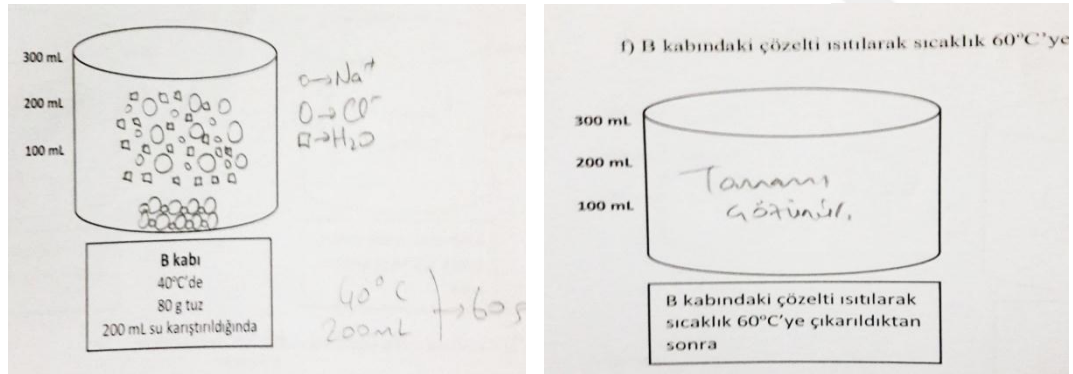 300 mL
200 mL
100 mL
o→Na⁺
O→Cl⁻
□→H₂O
B kabı
40°C'de
80 g tuz
200 mL su karıştırıldığında
40°C
200mL
→60g
f) B kabındaki çözelti ısıtılarak sıcaklık 60°C'ye
300 mL
200 mL
100 mL
Tamamı
çözünür.
B kabındaki çözelti ısıtılarak
sıcaklık 60°C'ye çıkarıldıktan
sonra